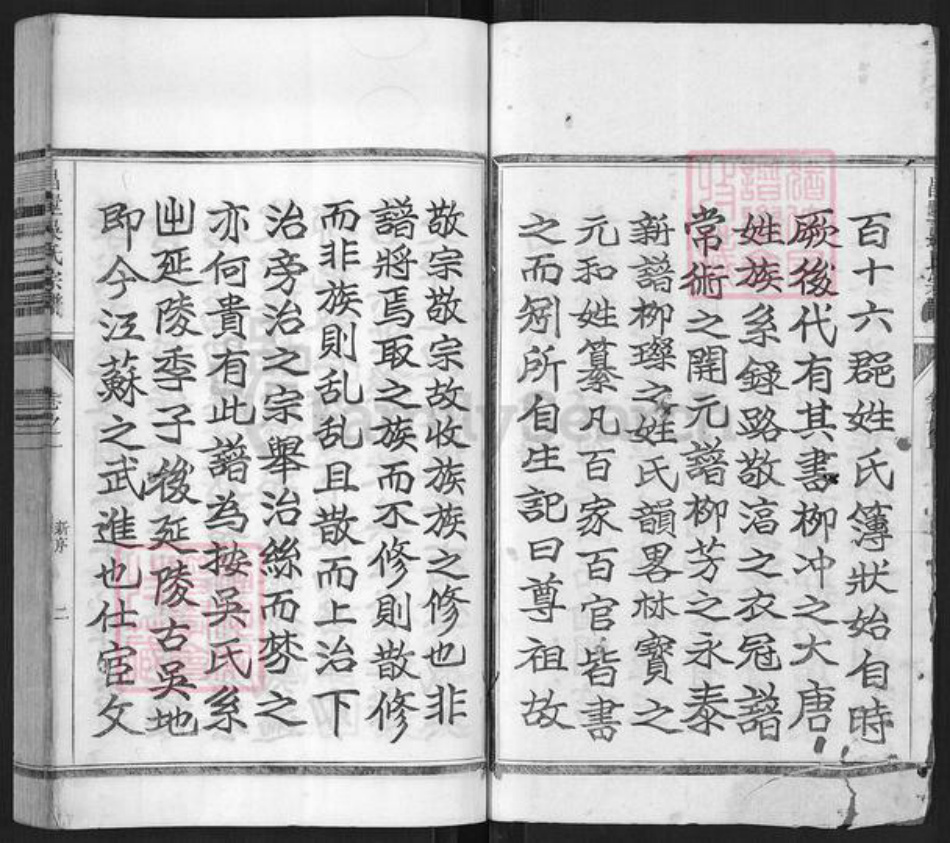 百十六郡姓氏簿狀始自時
厥後代有其書柳冲之大唐
姓族系錄路敬淳之衣冠譜
常術之開元譜柳芳之永泰
新譜柳璨之姓氏韻畧林寶之
元和姓纂凡百家百官皆書
之而矧所自生記曰尊祖故
敬宗敬宗故收族族之修也非
譜將焉取之族而不修則散修
而非族則乱乱且散而上治下
治旁治之宗舉治絲而棼之
亦何貴有此譜為按吳氏系
出延陵季子後延陵古吳地
即今江蘇之武進也仕宦文
吳氏宗譜
新序
二